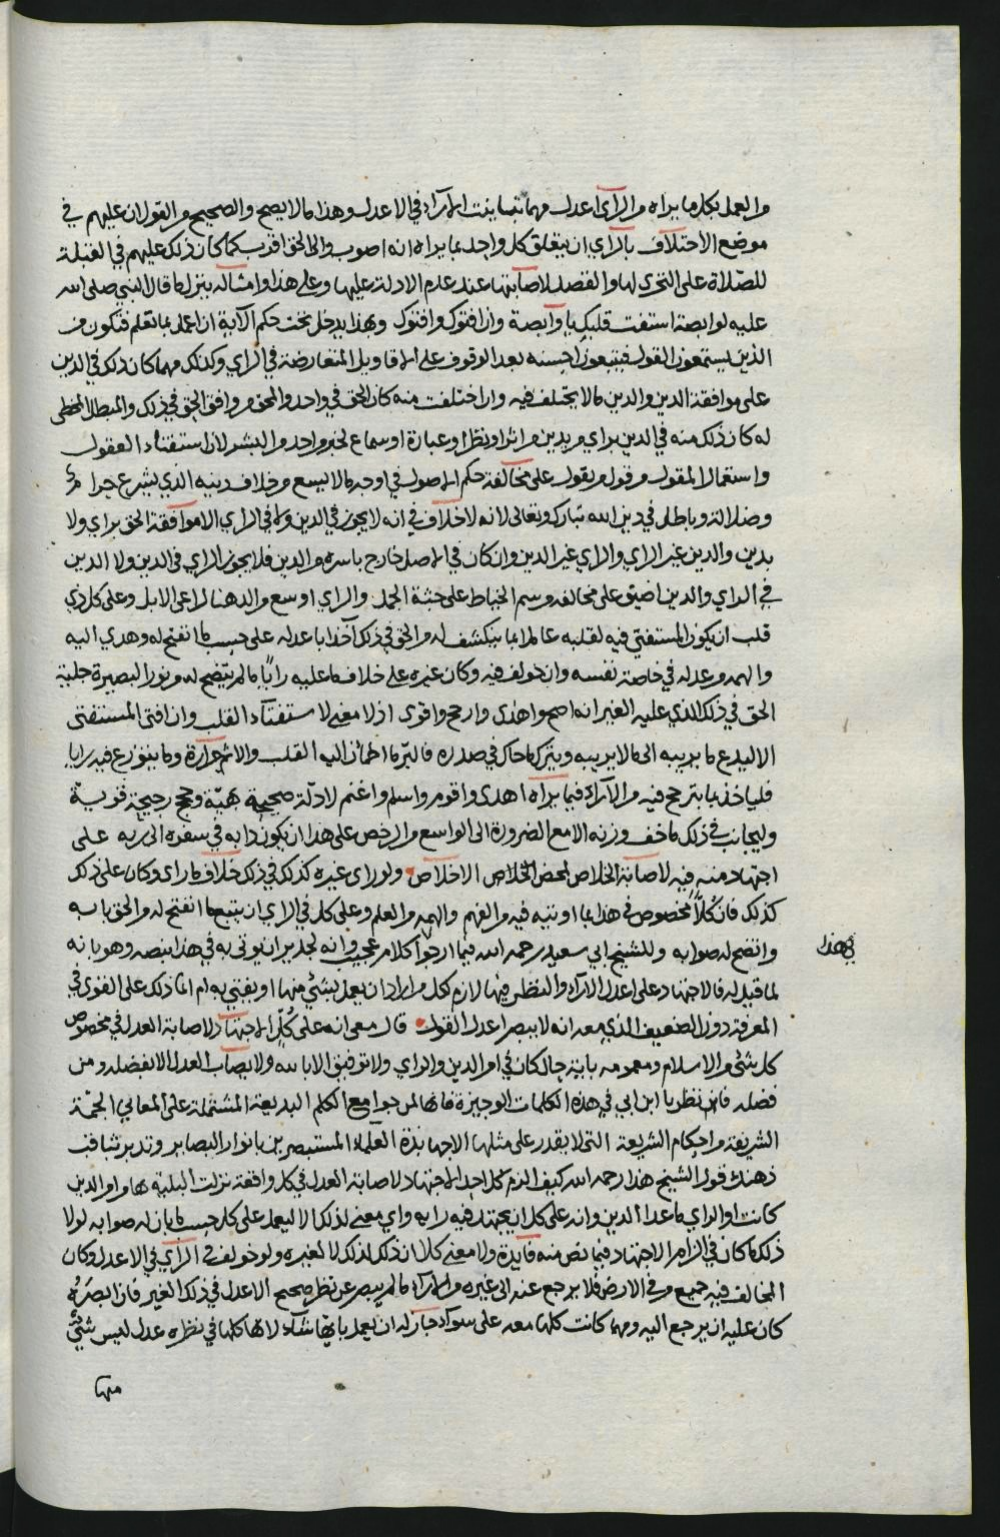 والعمل بكل ما يراه من الرأي أعدل مهما تباينت الآراء في الاعدل وهذا مالا يصح والصحيح من القول ان عليهم في
موضع الاختلاف بالرأي ان يتعلق كل واحد بما يراه انه اصوب والى الحق اقرب كما كان ذلك عليهم في القبلة
للصلاة على التحري لها والقصد لاصابتها عند عدم الادلة عليها وعلى هذا وامثاله يتنزل ما قال النبي صلى الله
عليه لوابصة استفت قلبك يا وابصة وان افتوك وافتوك وبهذا يدخل تحت حكم الآية ان اعمل بما تعلم فتكون من
الذين يستمعون القول فيتبعون احسنه بعد الوقوف على الاقاويل المتعارضة في الرأي وكذلك مهما كان ذلك في الدين
على موافقة الدين والدين مالا يختلف فيه وان اختلفت منه كان الحق في واحد والمحق من وافق الحق في ذلك والمبطل المخطي
له كان ذلك منه في الدين براي من يدين من اثر او نظر او عبارة او سماع لخبر واحد من البشر لان استفتاء العقول
واستعمال المقول من قول من يقول على مخالفة حكم الاصول في اوجه مالا يسع من خلاف دينه الذي شرع حرام
وضلالة وباطل في دين الله تبارك وتعالى لانه لا خلاف في انه لا يجوز في الدين ولا في الراي الا موافقة الحق براي ولا
بدين والدين غير الراي والراي غير الدين وان كان في الاصل خارج باسره من الدين فلا يجوز الراي في الدين ولا الدين
في الراي والدين اضيق على مخالفه من سم الخياط على جثة الجمل والراي اوسع من الدهنا لراعي الابل وعلى كل ذي
قلب ان يكون المستفتي فيه لقلبه عالما بما ينكشف له من الحق في ذلك آخذا باعدله على حسب ما انفتح له وهدي اليه
والهم من عدله في خاصة نفسه وان خولف فيه وكان غيره على خلاف ما عليه رايا ما لم يتضح له من نور البصيرة جلية
الحق في ذلك الذي عليه الغير انه اصح واهدى وارجح واقوى اذ لا معنى لاستفتاء القلب وان افتى المستفتى
الا ليدع ما يريبه الى مالا يريبه ويترك ما حاك في صدره فالبر ما اطمأن اليه القلب والاثم حزازة وما يتنوزع فيه رايا
فلياخذ بما يترجح فيه من الآراء فيما يراه اهدى واقوم واسلم واغنم لادلة صحيحة بهية وحجج رجيحة قوية
وليجانب في ذلك ما خف وزنه الا مع الضرورة الى الواسع من الرخص على هذا ان يكون دابه في سفره الى ربه على
اجتهاد منه فيه لاصابة الخلاص لمحض الاخلاص ولو راى غيره كذلك في ذلك خلاف ما راى وكان على ذلك
كذلك فان كلا مخصوص في هذا بما اوتيه فيه من الفهم والهم من العلم وعلى كل في الراي ان يتبع ما انفتح له من الحق بابه
واتضح له صوابه وللشيخ ابي سعيد رحمه الله فيما ارجو كلام عجيب وانه لجدير ان يوتى به في هذا بنصه وهو بانه
في هذا
لما قيل له فالاجتهاد على اعدل الآراء والنظر فيها لازم لكل من اراد ان يعمل بشئ منها او يفتي به ام انما ذلك على القوي في
المعرفة دون الضعيف الذي معه انه لا يبصر اعدل القول قال معي انه على كل الاجتهاد لاصابة العدل في مخصوص
كل شئ من الاسلام ومعمومه باية حال كان في امر الدين والراي ولا توفيق الا بالله ولا يصاب العدل الا بفضله ومن
فضله فانظر يا ابن ابي في هذه الكلمات الوجيزة فانها لمن جوامع الكلم البديعة المشتملة على المعاني الجمة
الشريفة من احكام الشريعة التي لا يقدر على مثلها الا جهابذة العلماء المستبصرين بانوار البصاير وتدبر بثاقب
ذهنك قول الشيخ هذا رحمه الله كيف الزم كل احد الاجتهاد لاصابة العدل في كل واقعة نزلت البلية بها من امر الدين
كانت او الراي ما عدا الدين وانه على كل ان يجتهد فيه رايه واي معنى لذلك الا ليعمل على كل حسب ما بان له صوابه لولا
ذلك ما كان في الزام الاجتهاد فيما نص منه فايدة ولا معنى كلا ان ذلك لذلك لا لغيره ولو خولف في الرأي في الاعدل وكان
المخالف فيه جميع من في الارض فلا يرجع عنه الى غيره من الآراء ما لم يبصر عن نظر صحيح الاعدل في ذلك الغير فان ابصره
كان عليه ان يرجع اليه ومهما كانت كلها معه على سواء جاز له ان يعمل بايها شاء لانها كلها في نظره عدل ليس شئ
منها